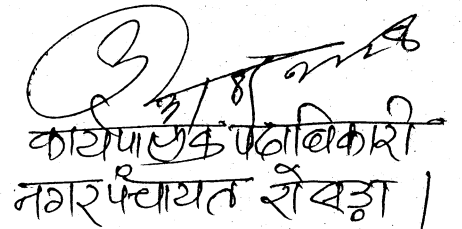 कार्यपालक पदाधिकारी
नगर पंचायत शेवड़ा।